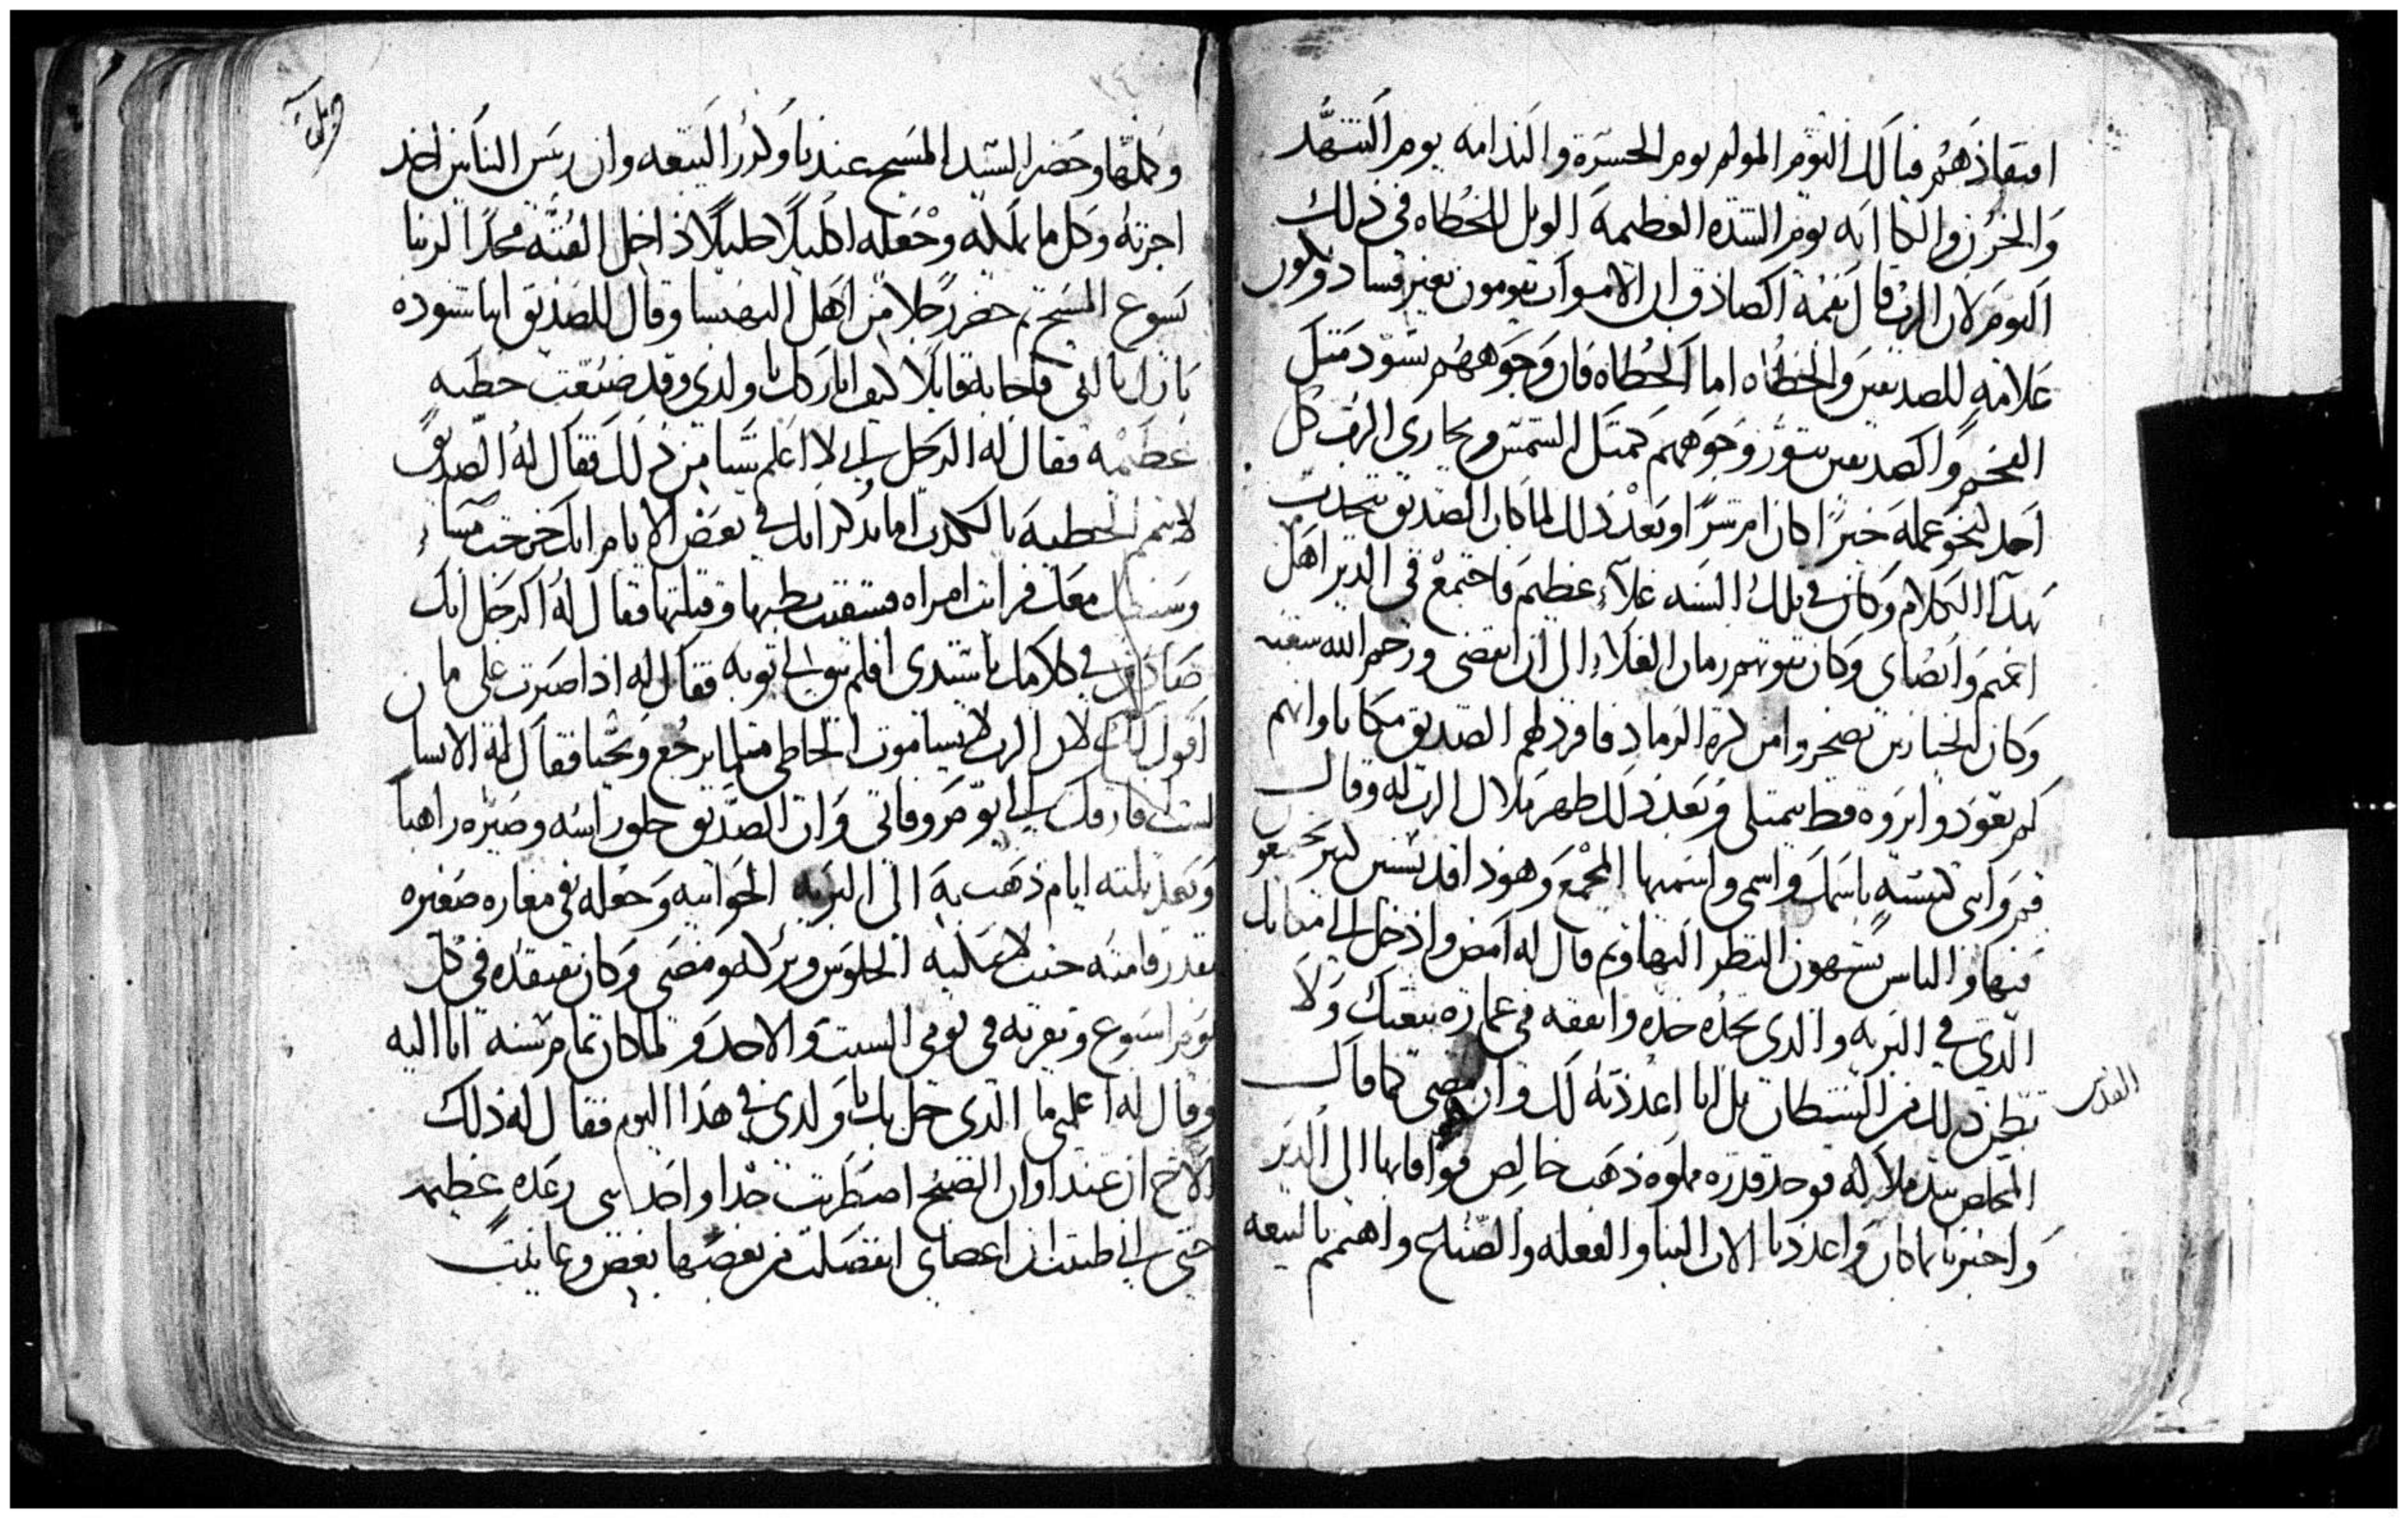 افتقاذهم فيا لك اليوم المولم يوم الحسره والندامه يوم التنهد
والحزن والبكا انه يوم الشده العظيمه الويل للخطاه في ذلك
اليوم لان الرب قال بفمه الصادق ان الاموات يقومون بغير فساد ويكون
علامه للصديقين والخطاه اما الخطاه فان وجوههم تسود متل
الفخم والصديقين تنور وجوههم كمتل الشمس ويجازي الرب كل
احد نحو عمله خيرًا كان ام شرًا وبعد ذلك لما كان الصديق يتحدت
بهدا الكلام وكان في تلك السنه غلاء عظيم فاجتمع في الدير اهل
اغنم وانصاي وكان يقوتهم زمان الغلاء الى ان انقضى ورحم الله شعبه
وكان الخبازين تضجروا من كتره الرماد فافرد لهم الصديق مكانا وانهم
لم يعودوا يروه قط يمتلي وبعد ذلك ظهر ملاك الرب له وقال
قم وابني كنيسه باسمك واسمي واسميها المجمع وهوذا قديسين كتير يجتمعو
فيها والناس يشتهون النظر اليها وتم قال له امض وادخل الى
الذي في البريه والذي تجده خده وانفقه في عماره بيعتك ولا
تظن ذلك من الشيطان بل انا اعددته لك وان مضى كما قال
القدس
المخلص بيد ملاكه فوجد قدره مملوه ذهب خالص فوافا بها الى الدير
واخبرنا بما كان واعددنا الات البنا والفعله والصناع واهتم بالبيعه
وكملها وحضر السيد المسيح عندنا وكرز البيعه وان ريس البنايين اخد
اجرته وكل ما يملكه وجعله اكليلًا جليلًا داخل القبه مجدًا لربنا
يسوع المسيح تم حضر رجلا من اهل البهنسا وقال للصديق انبا شنوده
بارك يا ابي فاجابه قايلًا كيف اباركك يا ولدي وقد صنعت خطيه
عظيمه فقال له الرجل لا اعلم شيا من ذلك فقال له الصديق
لا تتمم الخطيه بالكدب اما تدكر انك في بعض الايام انك خرجت مساء
معك فرايت امراه فشققت بطنها وقتلتها فقال له الرجل انك
صادق في كلامك يا سيدي افلم تبق لي توبه فقال له اذا صبرت على ما
اقول لك لان الرب لا يشا موت الخاطي متلما يرجع ويحيا فقال له الانسان
لست افارقك الى يوم وفاتي وان الصديق حلق راسه وصيره راهبا
وبعد تلته ايام ذهب به الى البريه الجوانيه وجعله في مغاره صغيره
بقدر قامته حيت لا يمكنه الجلوس وتركه ومضى وكان يفتقده في كل
يوم اسبوع ويقربه في يومي السبت والاحد ولما كان تمام سنه اتا اليه
وقال له اعلمني ما الذي حل بك يا ولدي في هذا اليوم فقال له ذلك
الاخ ان عند اوان الصبح اضطربت جدا واخدتني رعده عظيمه
حتى اني ظننت ان اعضاي انفصلت من بعضها بعض وعاينت